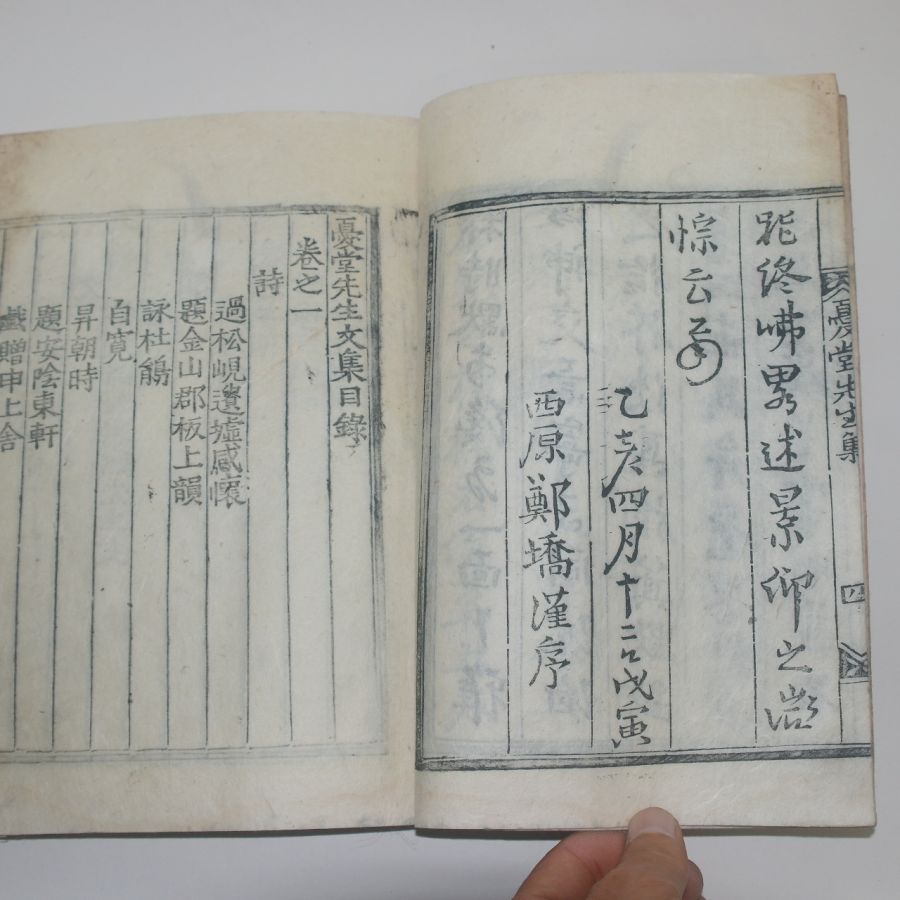 憂堂先生集
四
能終咈畧述景仰之微
悰云爾
乙亥四月十二日戊寅
西原鄭墧謹序
憂堂先生文集目錄
卷之一
詩
過松峴遺墟感懷
題金山郡板上韻
詠杜鵑
自寬
昇朝時
題安陰東軒
戱贈申上舍